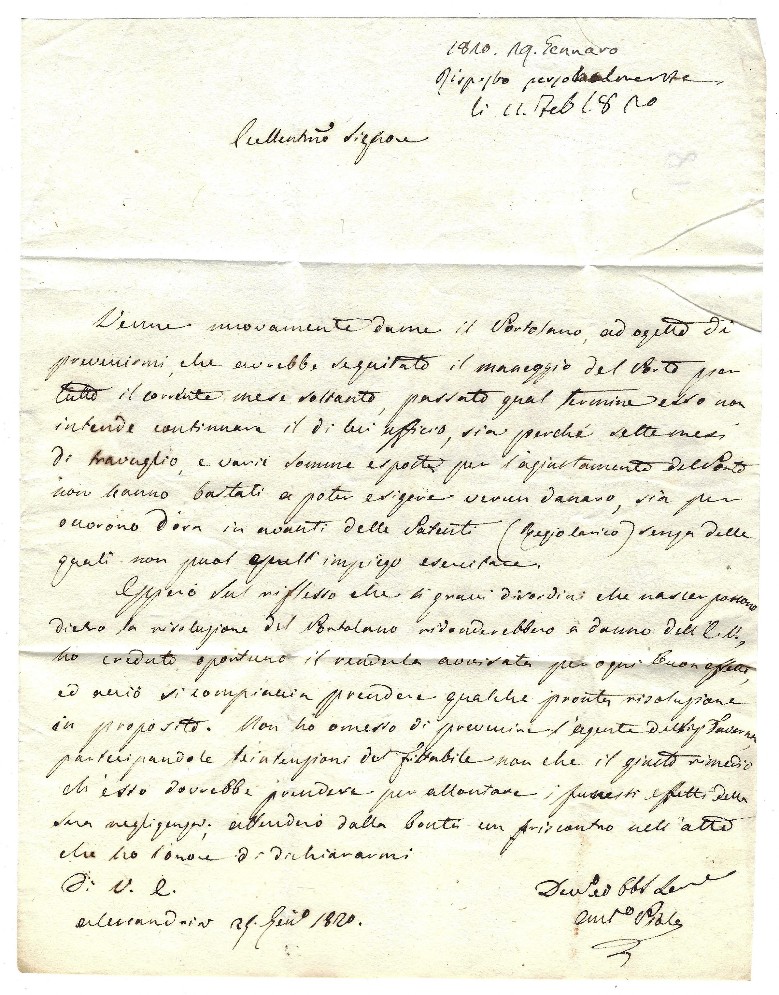 1820. 29. Gennaro
Risposto personalmente
li 11. Feb 1820
Eccellentmo Signore
Venne nuovamente dame il Portolano, ad ogetto di
prevenirmi, che avrebbe seguitato il maneggio del Porto per
tutto il corrente mese soltanto, passato qual termine esso non
intende continuare il di lui ufficio, sia perché sette mesi
di travaglio, e varie somme esposte per l'agiustamento del Porto
non hanno bastati a poter esigere verun danaro, sia per
d'ora in avanti delle Patenti ( ) senza delle
quali non puol quell'impiego esercitare.
Epperò sul riflesso che i gravi disordini che nascer possono
dietro la risoluzione del Portolano ridonderebbero a danno dell'E. V.,
ho creduto oportuno il renderla avvisata per ogni buon effetto,
ed acciò si compiaccia prendere qualche pronta risoluzione
in proposito. Non ho omesso di prevenire l'agente del Sig Taverna,
partecipandole le intenzioni del fittabile non che il giusto rimedio
ch'esso dovrebbe prendere per allontare i funesti effetti della
sua negligenza, attenderò dalla bontà un riscontro nell'atto
che ho l'onore di dichiararmi
Di V. E.
Alessandria 29. Genro 1820.
Devo ed Obbl Serve
Anto